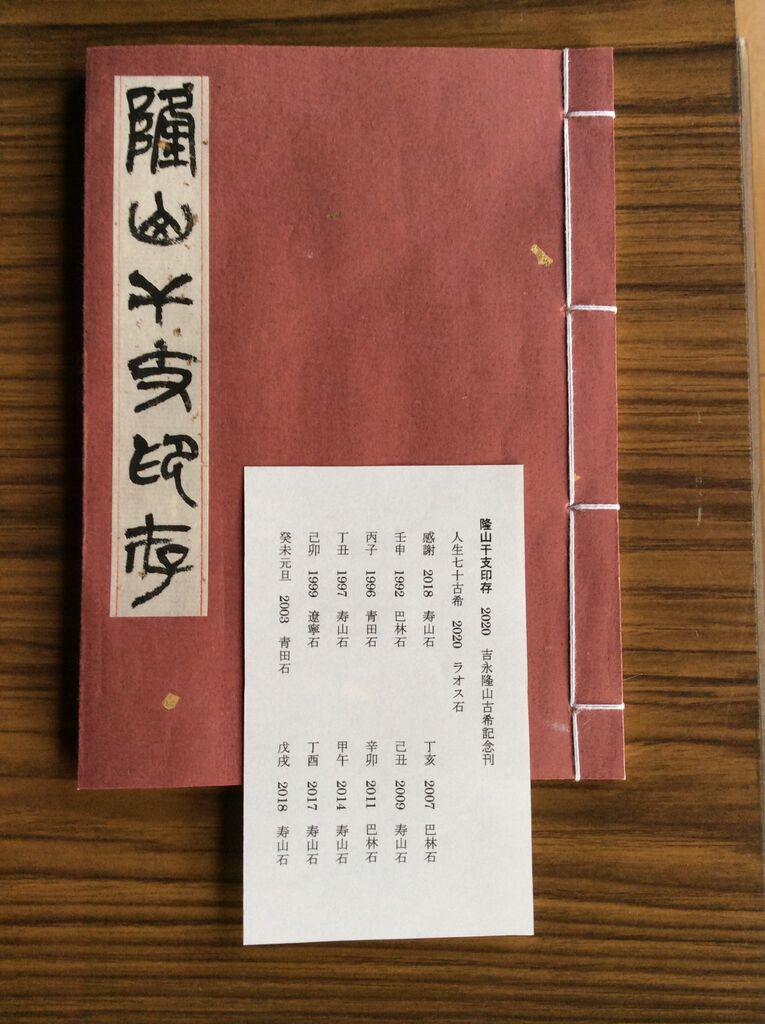 隆山干支印存
隆山干支印存　2020　吉永隆山古希記念刊
人生七十古希　2020　ラオス石
感謝　2018　寿山石
壬申　1992　巴林石
丙子　1996　青田石
丁丑　1997　寿山石
己卯　1999　遼寧石
癸未元旦　2003　青田石
丁亥　2007　巴林石
己丑　2009　寿山石
辛卯　2011　巴林石
甲午　2014　寿山石
丁酉　2017　寿山石
戊戌　2018　寿山石